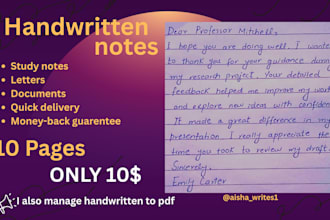 Handwritten
notes
Study notes
Letters
Documents
Quick delivery
Money-back guarentee
10 Pages
ONLY 10$
I also manage handwritten to pdf
Dear Professor Mitchell,
I hope you are doing well. I wante
to thank you for your guidance during
my research project. Your detailed
feedback helped me improve my work
and explore new ideas with confidenc
It made a great difference in my
presentation. I really appreciate the
time you took to review my draft.
Sincerely,
Emily Carter
@aisha_writes1